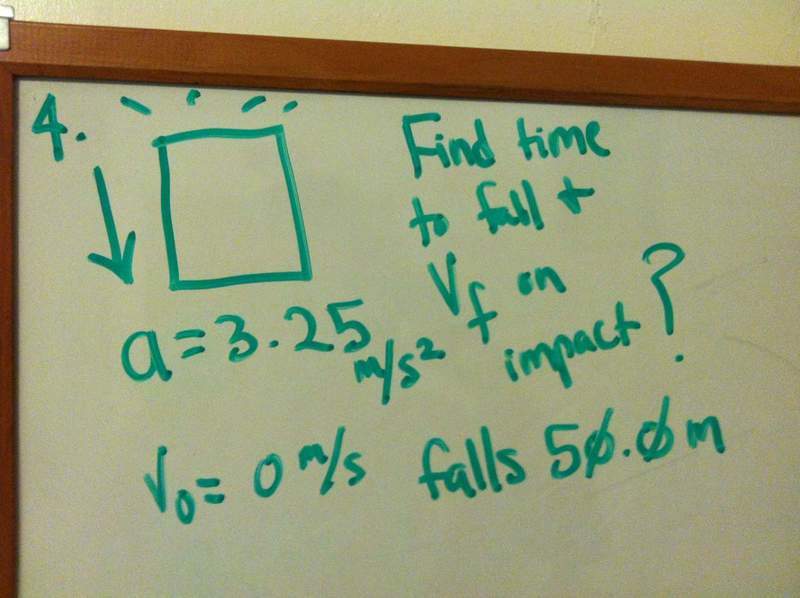 4.
Find time
to fall +
Vf on
impact?
a = 3.25 m/s²
V₀ = 0 m/s falls 50.0m